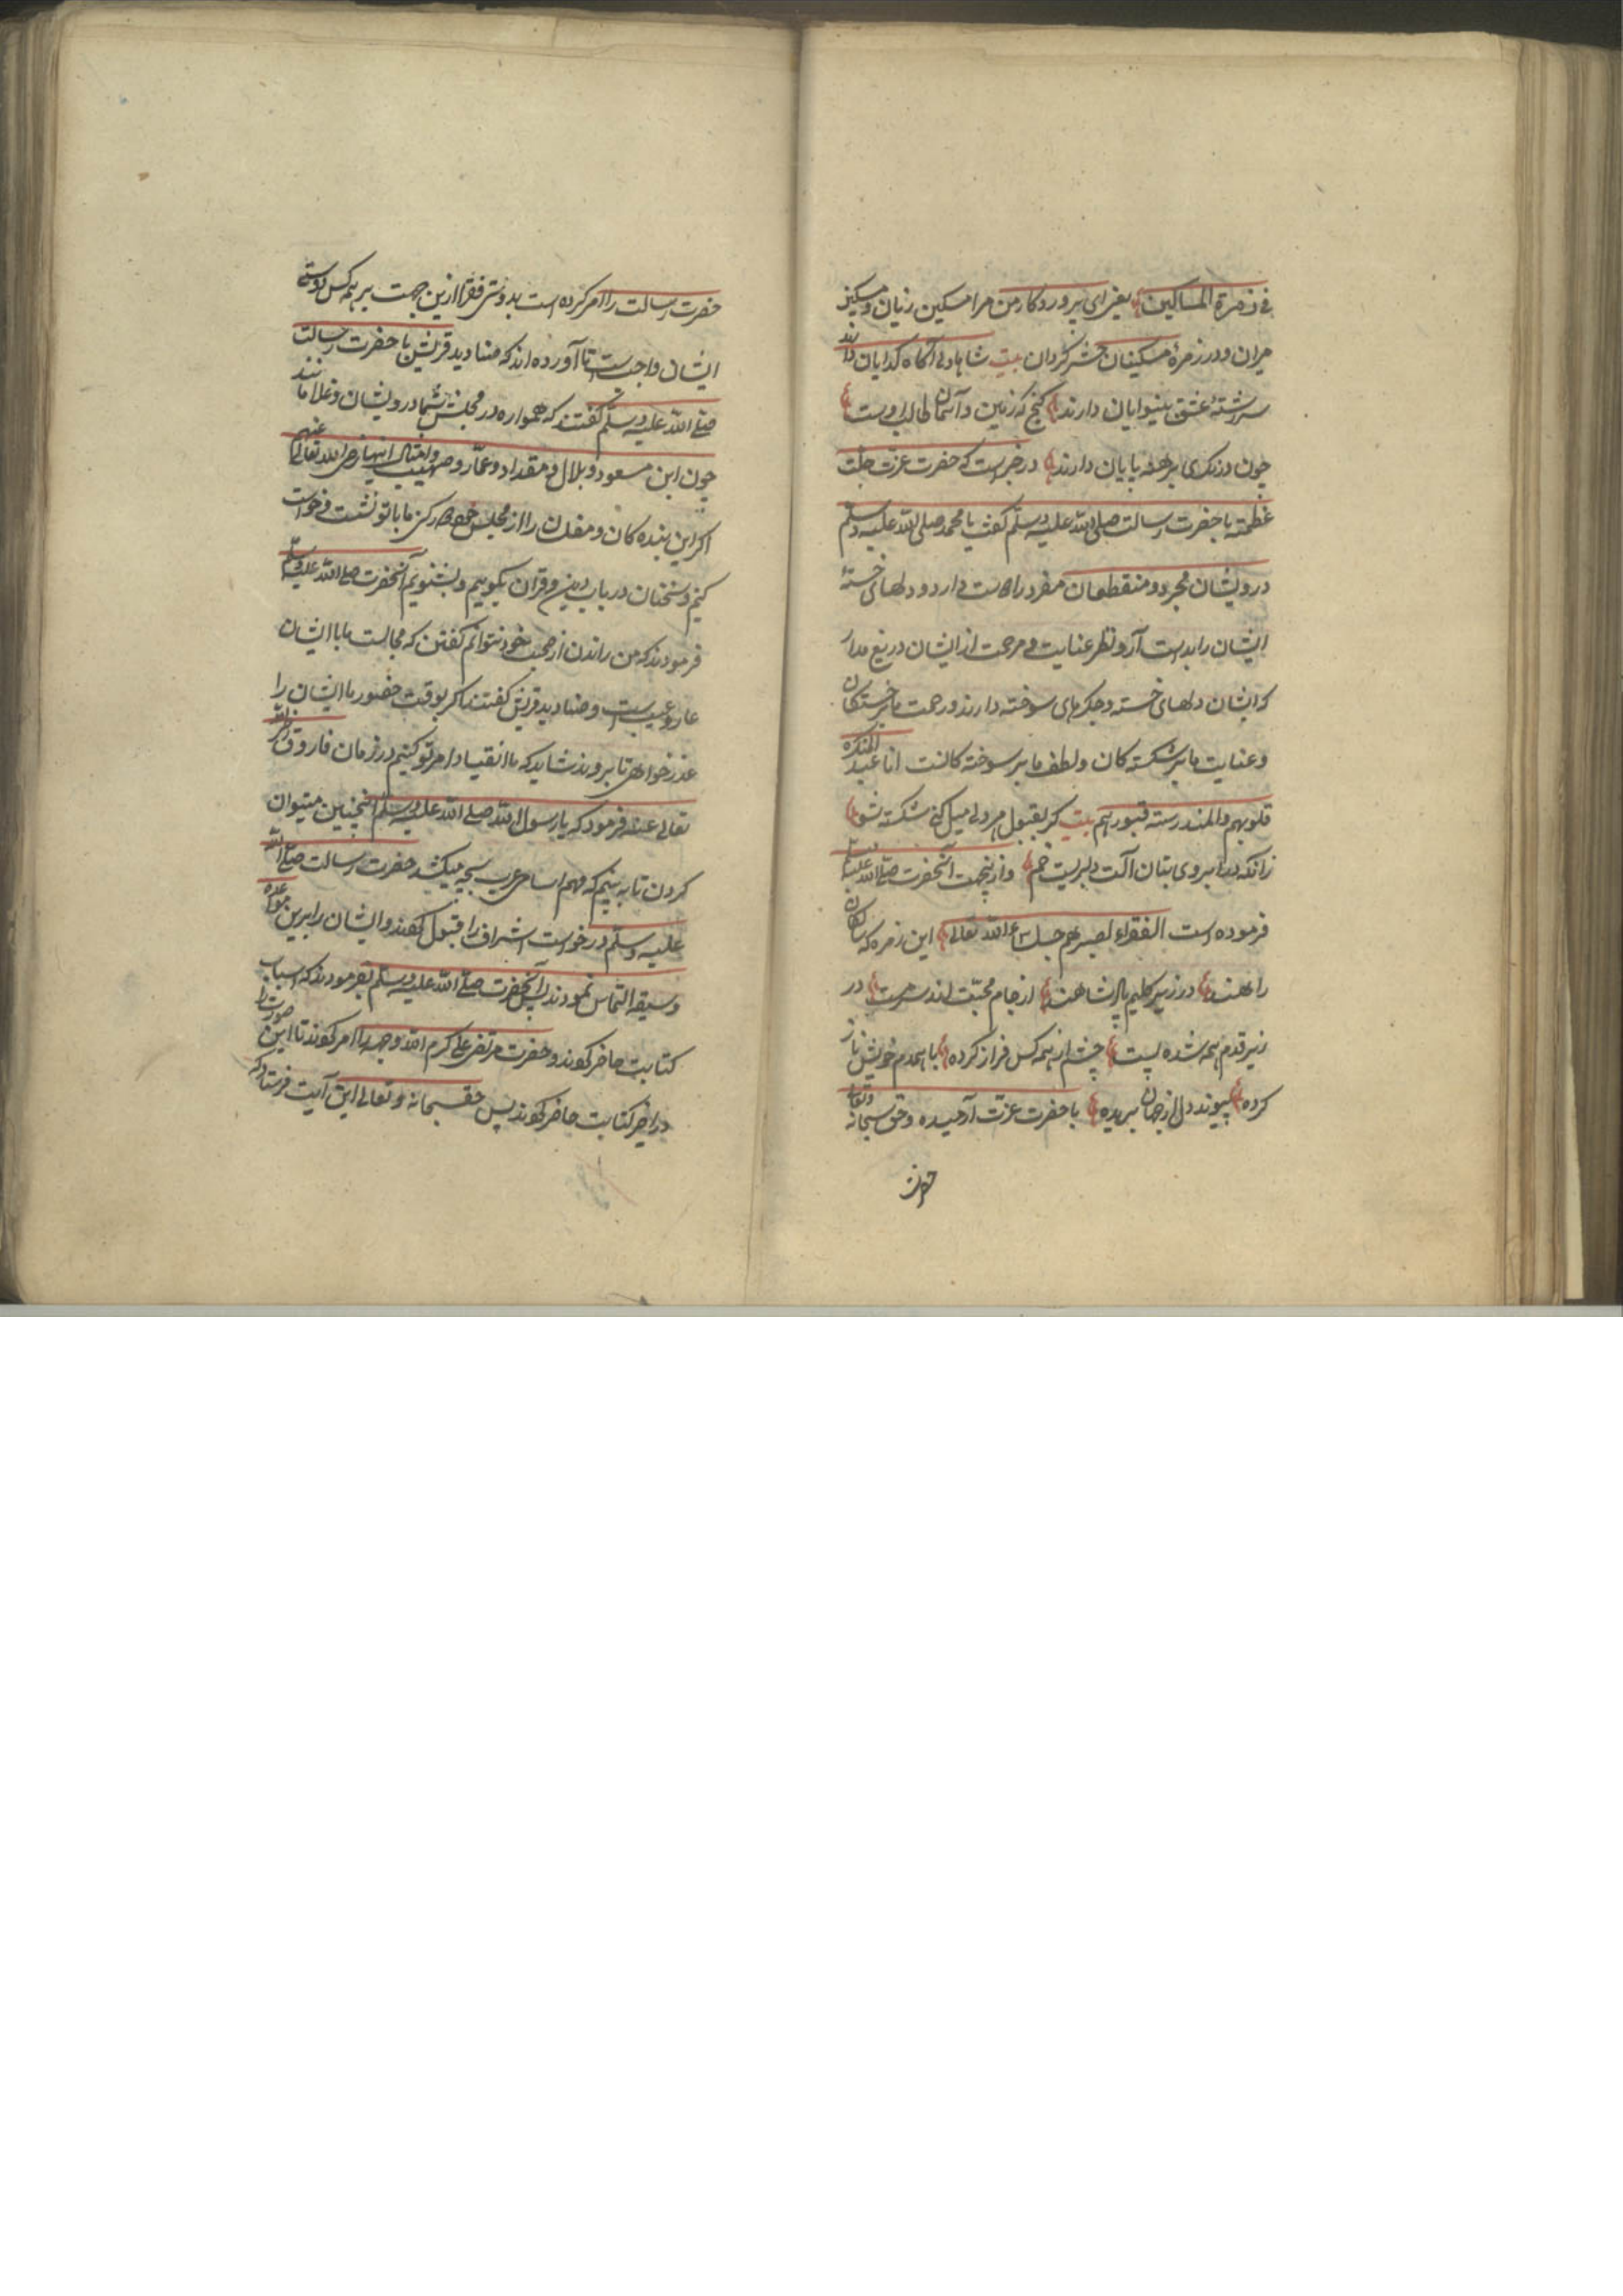 فی زمرة المساکین یعنی ای پروردکار من مرا مسکین زیان و مسکین
میران و در زمرهٔ مسکینان حشر کردان بیت شاها دل آکاه کدایان دارند
سررشتهٔ عشق بینوایان دارند کنج که زمین و آسمان طالب اوست
چون درنکری برهنه پایان دارند در خبر است که حضرت عزت جلت
عظمته با حضرت رسالت صلی الله علیه وسلم کفت یا محمد صلی الله علیه وسلم
درویشان مجرد و منقطعان مفرد را دوست دار و دلهای خستهٔ
ایشان را بدست آر و نظر عنایت و مرحمت از ایشان دریغ مدار
که ایشان دلهای خسته و جکرهای سوخته دارند و رحمت ما بر خستکان
و عنایت ما بر شکسته کان و لطف ما بر سوخته کانست انا عند المنکسرة
قلوبهم والمندرسته قبورهم بیت کر بقبول مردلی میل کنی شکسته شو
زانکه در ابروی بتان آلت دلبریست خم و ازینجهت آنحضرت صلی الله علیه وسلم
فرموده است الفقراء لصبرهم جلساء الله تعالی این زمره که سالکان
راهند در زیر کلیم پادشاهند از جام محبت اند سرمست در
زیر قدم همه شده پست چشم از همه کس فراز کرده با همدم خویش ناز
کرده پیوند دل از جهان بریده با حضرت عزت آرمیده و حق سبحانه وتعالی
حضرت
حضرت رسالت را امر کرده است بدوستی فقرا ازین جهت بر همه کس دوستی
ایشان واجبست تا آورده اند که صنادید قریش با حضرت رسالت
صلی الله علیه وسلم کفتند که همواره در مجلس شما درویشان و غلامانند
چون ابن مسعود و بلال و مقداد و عمار و صهیب و امثال اینها رضی الله تعالی عنهم
اکر این بنده کان و مفلسان را از مجلس خود دور کنی ما با تو نشست و خواست
کنیم و سخنان در باب دین و قران بکوییم و بشنویم آنحضرت صلی الله علیه وسلم
فرمودند که من راندن از صحبت خود نتوانم کفتن که مجالست ما با ایشان
عار و عیب است و صنادید قریش کفتند اکر بوقت حضور ما ایشان را
عذر خواهی تا بروند شاید که ما انقیاد امر تو کنیم در زمان فاروق رضی الله
تعالی عنه فرمود که یا رسول الله صلی الله علیه وسلم اینچنین میتوان
کردن تا به بینیم که مهم اسامی عرب بچه میکشد حضرت رسالت صلی الله
علیه وسلم درخواست اشراف را قبول کردند و ایشان را برین مواعده
وسیقه التماس نمودند پس آنحضرت صلی الله علیه وسلم بفرمودند که اسباب
کتابت حاضر کوند و حضرت مرتضی علی کرم الله وجهه را امر کوند تا این صورت را
در کتابت حاضر کوند پس حق سبحانه وتعالی این آیت فرستاد که